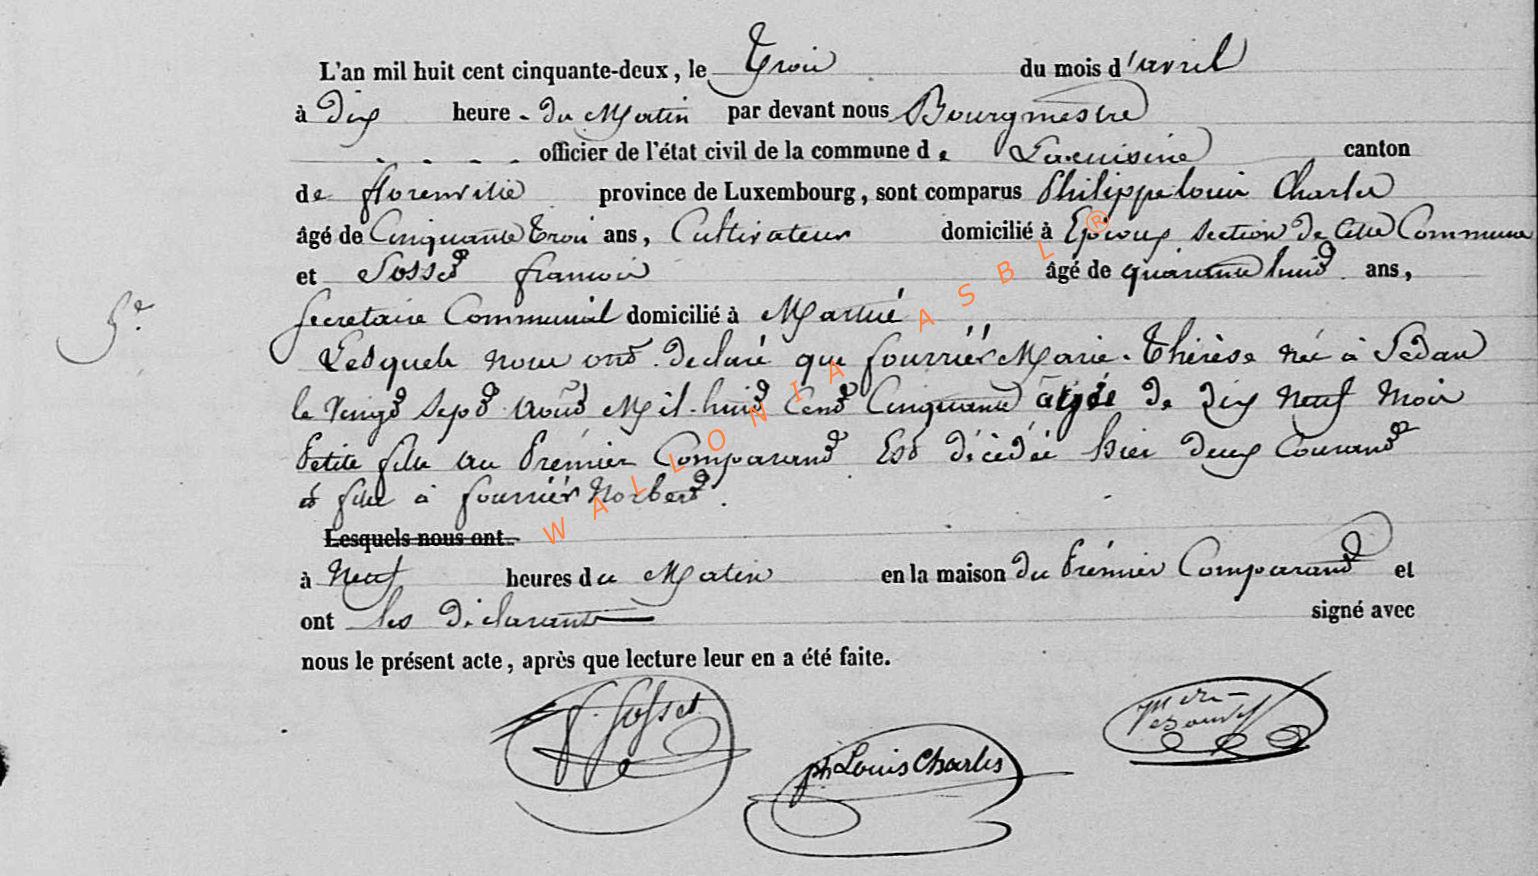 L'an mil huit cent cinquante-deux, le Trois du mois d'avril
à dix heure - du Matin par devant nous Bourgmestre
officier de l'état civil de la commune de Lacuisine canton
de florenville province de Luxembourg, sont comparus Philippe louis Charles
âgé de Cinquante trois ans, Cultivateur domicilié à Epioux section de Cette Commune
et Sosset françois âgé de quarante huit ans,
5e
Secretaire Communal domicilié à Martué
Lesquels nous ont declaré que fourriér Marie-Thérèse née à Sedan
le vingt sept août Mil-huit Cent Cinquante agée de dix neuf Mois
Petite fille au Prémier Comparant Est décédée hier deux Courant
et fille à fourriér Norbert.
Lesquels nous ont
à Neuf heures du Matin en la maison du Prémier Comparant et
ont les déclarants signé avec
nous le présent acte, après que lecture leur en a été faite.
f. Sosset
ph Louis Charles
WALLONIA ASBL ®